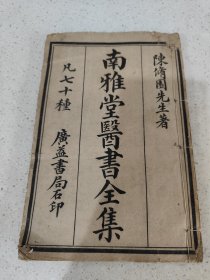 陳脩園先生著
南雅堂醫書全集
凡七十種
廣益書局石印